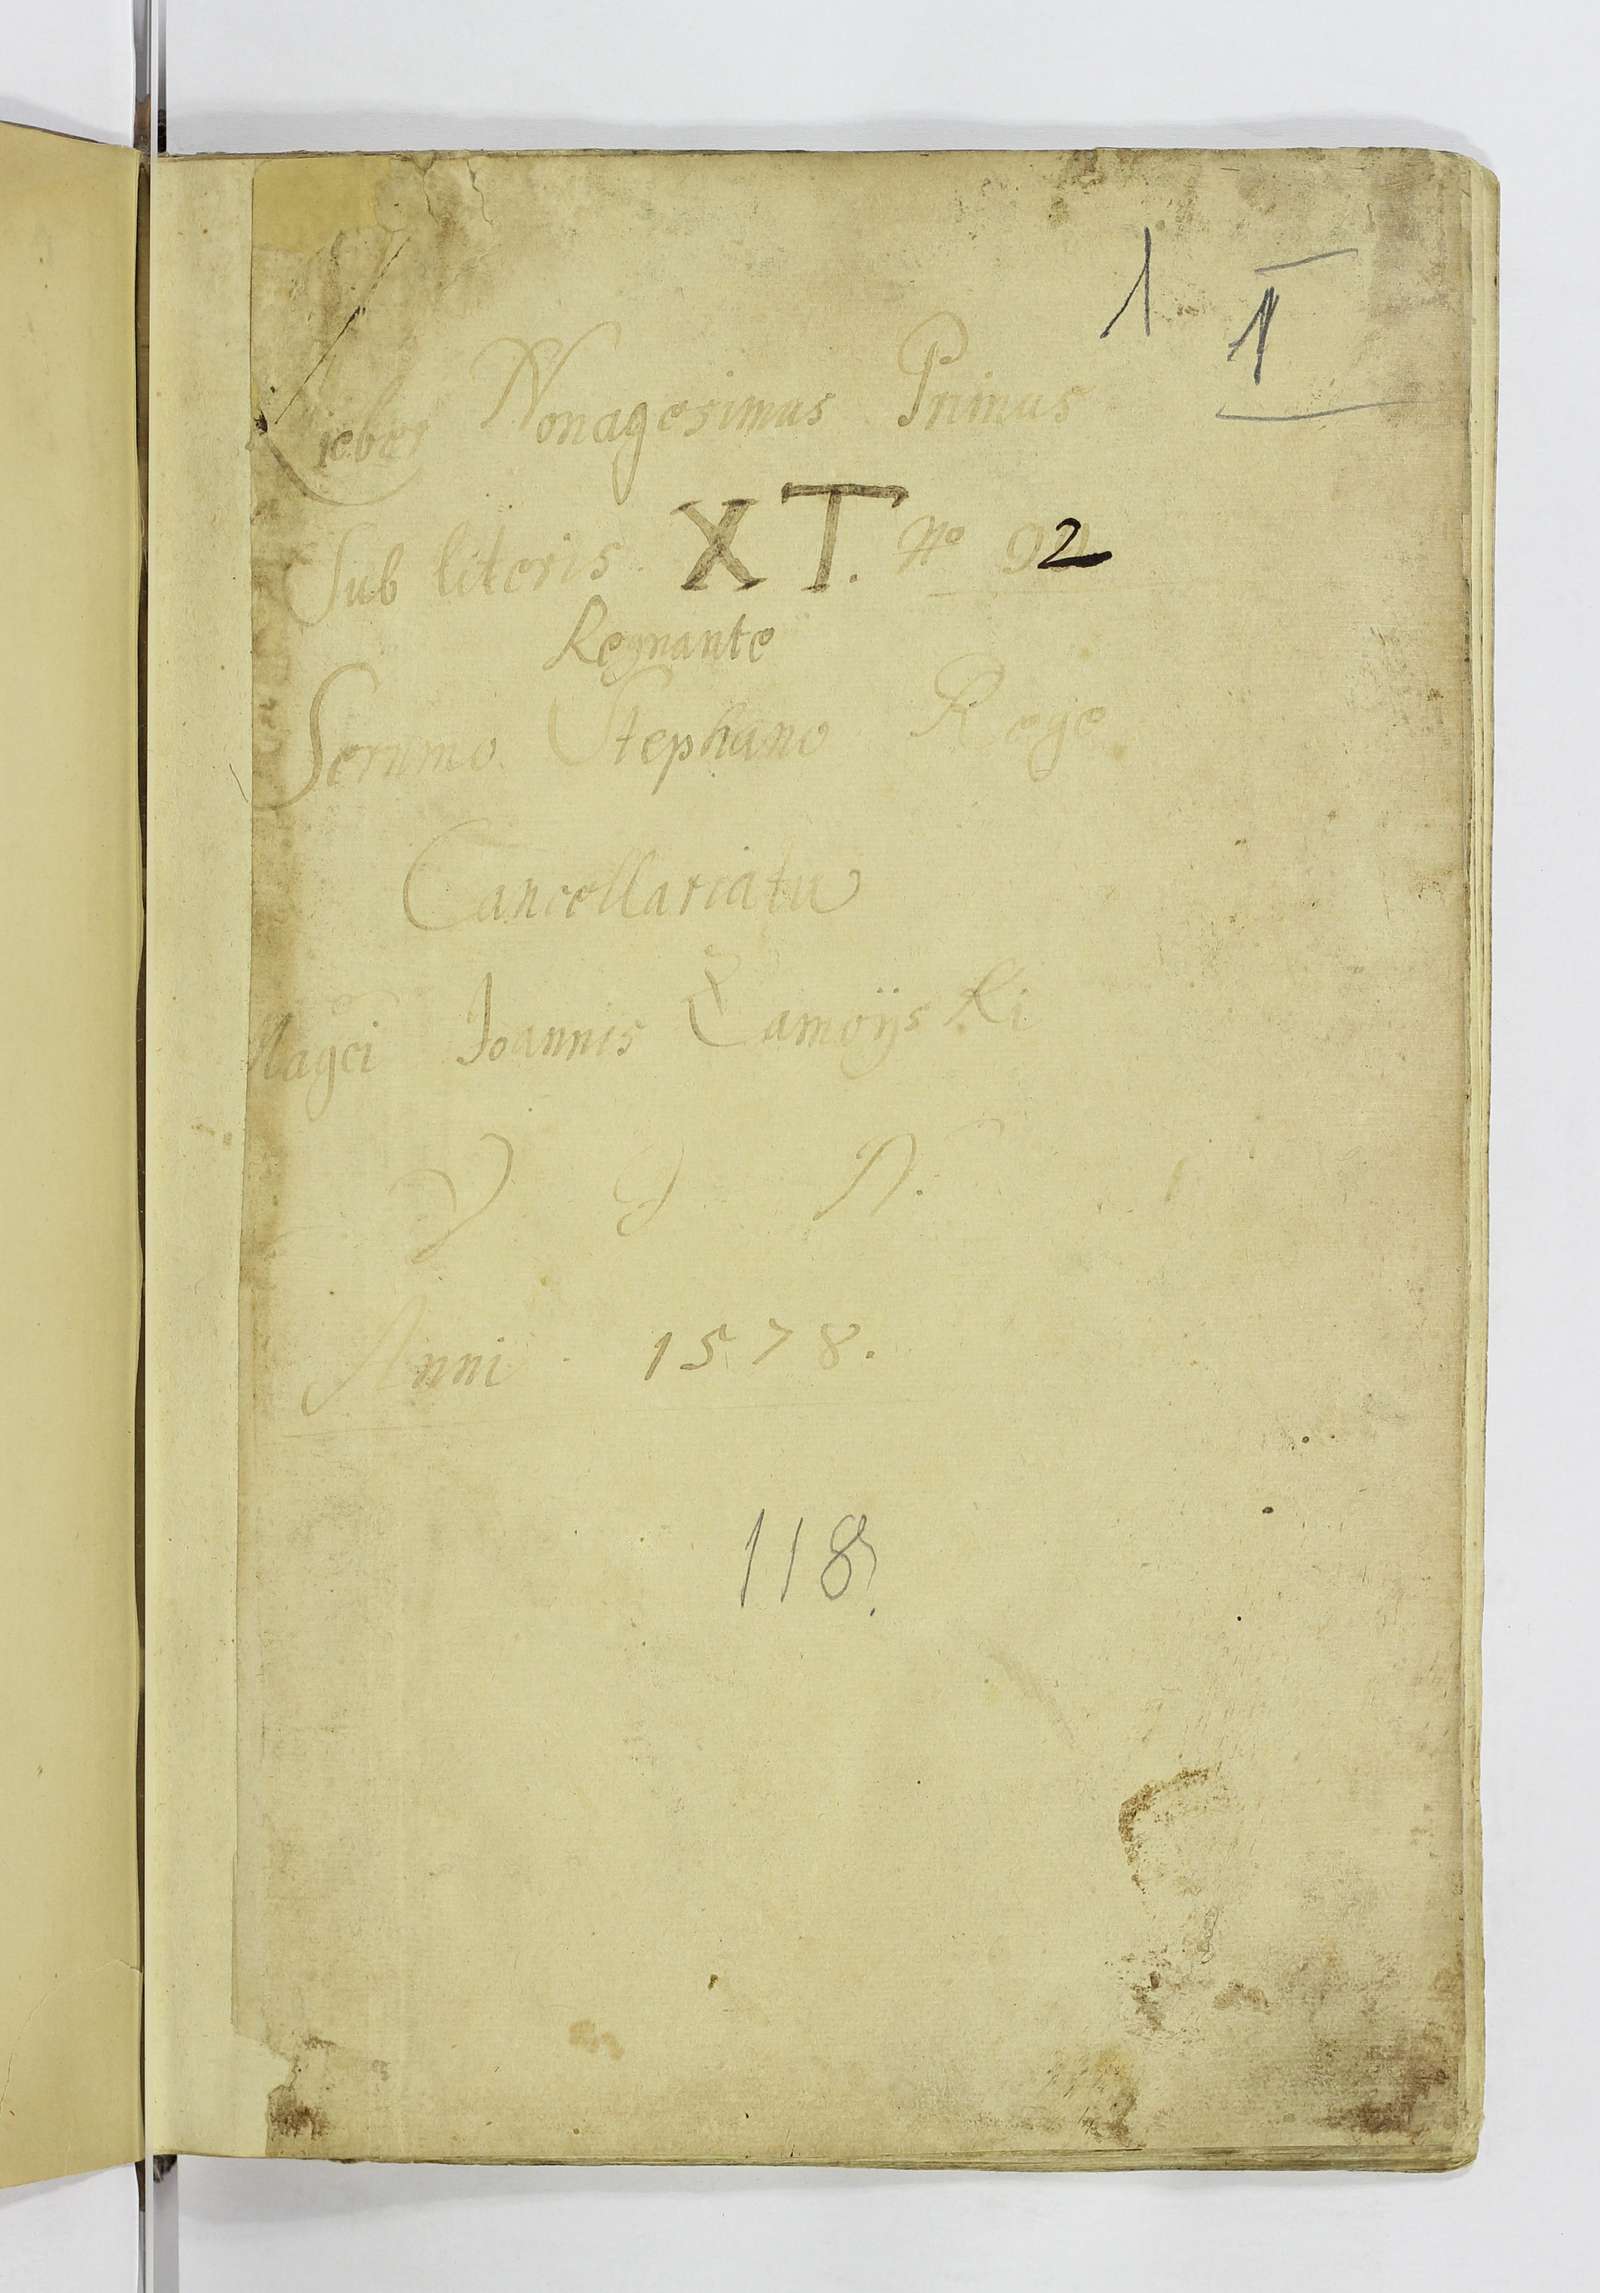 1 1
Lieber Nonagesimus Primus
Sub literis XT. No 92
Regnante
Sernmo Stephano Rege
Cancellariatu
Magci Joannis Zamoÿski
Anni 1578.
118